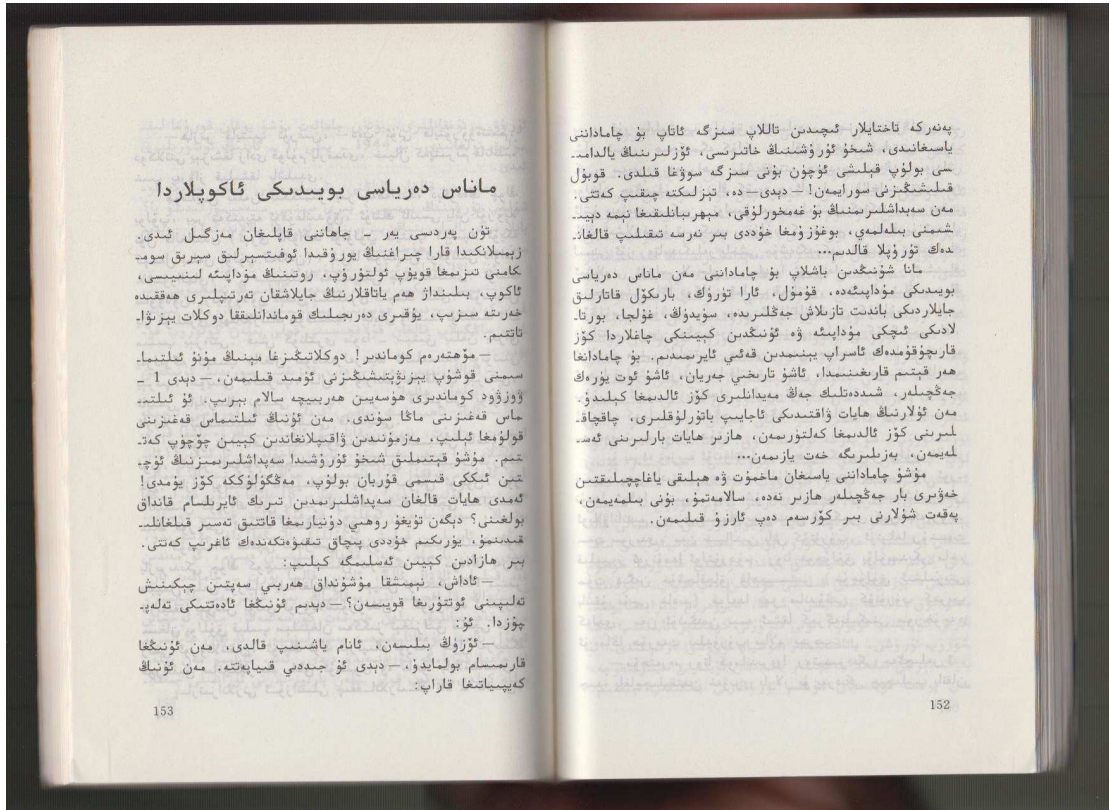 پەنەركە تاختايلار ئىچىدىن تاللاپ سىزگە ئاتاپ بۇ چاماداننى
ياسىغانىدى، شىخۇ ئۇرۇشىنىڭ خاتىرىسى، ئۆزلىرىنىڭ يالدامـ
سى بولۇپ قېلىشى ئۈچۈن بۇنى سىزگە سوۋغا قىلدى. قوبۇل
قىلىشىڭىزنى سورايمەن! — دېدى—دە، تېزلىكتە چىقىپ كەتتى.
مەن سەبداشلىرىمنىڭ بۇ غەمخورلۇقى، مېھرىبانلىقىغا نېمە دېيىـ
شىمنى بىلەلمەي، بوغۇزۇمغا خۇددى بىر نەرسە تىقىلىپ قالغانـ
دەك تۇرۇپلا قالدىم...
مانا شۇنىڭدىن باشلاپ بۇ چاماداننى مەن ماناس دەرياسى
بويىدىكى مۇداپىئەدە، قۇمۇل، ئارا تۈرۈك، بارىكۆل قاتارلىق
جايلاردىكى باندىت تازىلاش جەڭلىرىدە، سۈيدۈڭ، غۇلجا، بورتاـ
لادىكى ئىچكى مۇداپىئە ۋە ئۇنىڭدىن كېيىنكى چاغلاردا كۆز
قارىچۇقۇمدەك ئاسراپ يېنىمدىن قەئىي ئايرىمىدىم. بۇ چامادانغا
ھەر قېتىم قارىغىنىمدا، ئاشۇ تارىخىي جەريان، ئاشۇ ئوت يۈرەك
جەڭچىلەر، شىددەتلىك جەڭ مەيدانلىرى كۆز ئالدىمغا كېلىدۇ.
مەن ئۇلارنىڭ ھايات ۋاقتىدىكى ئاجايىپ باتۇرلۇقلىرى، چاقچاقـ
لىرىنى كۆز ئالدىمغا كەلتۈرىمەن، ھازىر ھايات بارلىرىنى ئەسـ
لەيمەن، بەزىلىرىگە خەت يازىمەن...
مۇشۇ چاماداننى ياسىغان ماخمۇت ۋە ھېلىقى ياغاچچىلىقتىن
خەۋىرى بار جەڭچىلەر ھازىر نەدە، سالامەتمۇ، بۇنى بىلمەيمەن،
پەقەت شۇلارنى بىر كۆرسەم دەپ ئارزۇ قىلىمەن.
152
ماناس دەرياسى بويىدىكى ئاكوپلاردا
تۈن پەردىسى يەر ـ جاھاننى قاپلىغان مەزگىل ئىدى.
زېمىلانكىدا قارا چىراغنىڭ يورۇقىدا ئوفىتسېرلىق سېرىق سومـ
كامنى تىزىمغا قويۇپ ئولتۇرۇپ، روتىنىڭ مۇداپىئە لىنىيىسى،
ئاكوپ، بىلىنداژ ھەم ياتاقلارنىڭ جايلاشقان تەرتىپلىرى ھەققىدە
خەرىتە سىزىپ، يۇقىرى دەرىجىلىك قوماندانلىققا دوكلات يېزىۋاـ
تاتتىم.
— مۆھتەرەم كوماندىر! دوكلاتىڭىزغا مېنىڭ مۇنۇ ئىلتىماـ
سىمنى قوشۇپ يېزىۋېتىشىڭىزنى ئۈمىد قىلىمەن، — دېدى 1 ـ
ۋزۋود كوماندىرى ھۈسەيىن ھەربىيچە سالام بېرىپ. ئۇ ئىلتىـ
ماس قەغىزىنى ماڭا سۇندى. مەن ئۇنىڭ ئىلتىماس قەغىزىنى
قولۇمغا ئېلىپ، مەزمۇنىدىن ۋاقىپلانغاندىن كېيىن چۆچۈپ كەتـ
تىم. مۇشۇ قېتىملىق شىخۇ ئۇرۇشىدا سەپداشلىرىمىزنىڭ ئۈچـ
تىن ئىككى قىسمى قۇربان بولۇپ، مەڭگۈلۈككە كۆز يۇمدى!
ئەمدى ھايات قالغان سەپداشلىرىمدىن تىرىك ئايرىلسام قانداق
بولغىنى؟ دېگەن تۇيغۇ روھىي دۇنيارىمغا قاتتىق تەسىر قىلغانلىـ
قىدىنمۇ، يۈرىكىم خۇددى پىچاق تىقىۋەتكەندەك ئاغرىپ كەتتى.
بىر ھازادىن كېيىن ئەسلىمگە كېلىپ:
— ئاداش، نېمىشقا مۇشۇنداق ھەربىي سەپتىن چېكىنىش
تەلىپىنى ئوتتۇرىغا قويىسەن؟ — دېدىم ئۇنىڭغا ئادەتتىكى تەلەپـ
پۇزدا. ئۇ:
— ئۆزۈڭ بىلىسەن، ئانام ياشىنىپ قالدى، مەن ئۇنىڭغا
قارىمىسام بولمايدۇ، — دېدى ئۇ جىددىي قىياپەتتە. مەن ئۇنىڭ
كەيپىياتىغا قاراپ:
153